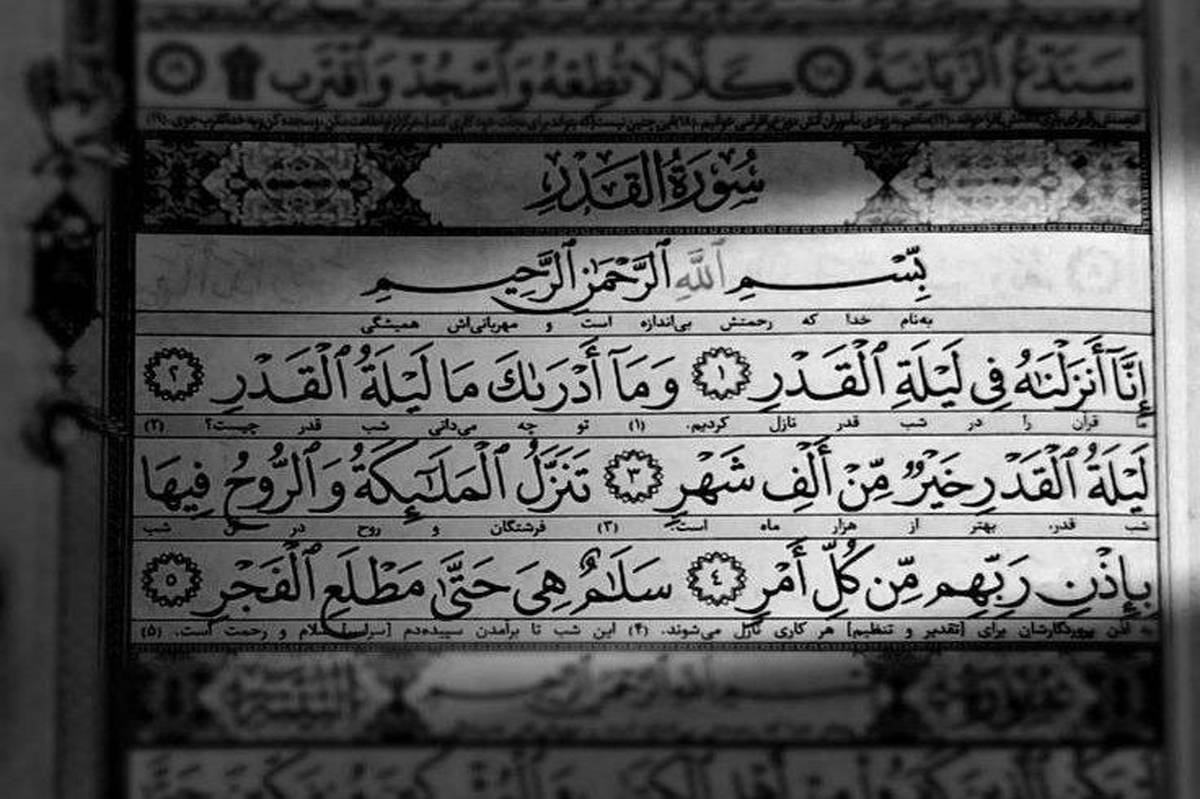 سَنَدْعُ ٱلزَّبَانِيَةَ ١٨ كَلَّا لَا تُطِعْهُ وَٱسْجُدْ وَٱقْتَرِب ۩ ١٩
سُورَةُ القَدْرِ
بِسْمِ ٱللَّهِ ٱلرَّحْمَٰنِ ٱلرَّحِيمِ
به‌نام خدا که رحمتش بی‌اندازه است و مهربانی‌اش همیشگی
إِنَّآ أَنزَلْنَٰهُ فِى لَيْلَةِ ٱلْقَدْرِ ١ وَمَآ أَدْرَىٰكَ مَا لَيْلَةُ ٱلْقَدْرِ ٢
ما قرآن را در شب قدر نازل کردیم. (۱) تو چه می‌دانی شب قدر چیست؟ (۲)
لَيْلَةُ ٱلْقَدْرِ خَيْرٌ مِّنْ أَلْفِ شَهْرٍ ٣ تَنَزَّلُ ٱلْمَلَٰٓئِكَةُ وَٱلرُّوحُ فِيهَا
شب قدر، بهتر از هزار ماه است. (۳) فرشتگان و روح در شب
بِإِذْنِ رَبِّهِم مِّن كُلِّ أَمْرٍ ٤ سَلَٰمٌ هِىَ حَتَّىٰ مَطْلَعِ ٱلْفَجْرِ ٥
به اذن پروردگارشان برای [تقدیر و تنظیم] هر کاری نازل می‌شوند. (۴) این شب تا برآمدن سپیده‌دم [سراسر] سلام و رحمت است. (۵)
بِسْمِ ٱللَّهِ ٱلرَّحْمَٰنِ ٱلرَّحِيمِ